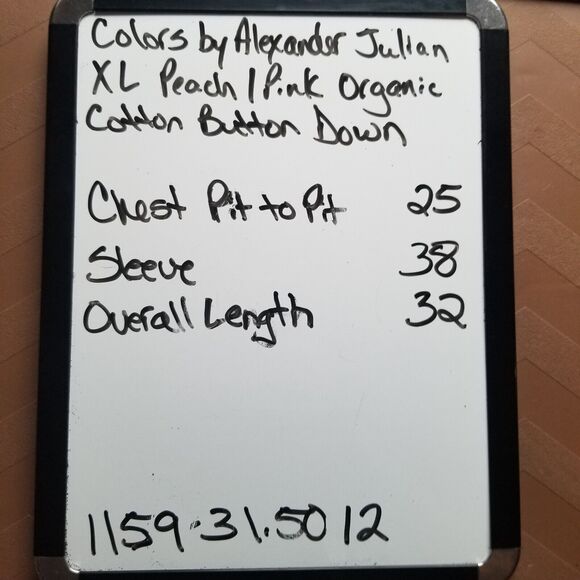 Colors by Alexander Julian
XL Peach/Pink Organic
Cotton Button Down
Chest Pit to Pit 25
Sleeve 38
Overall Length 32
1159.31.50 12